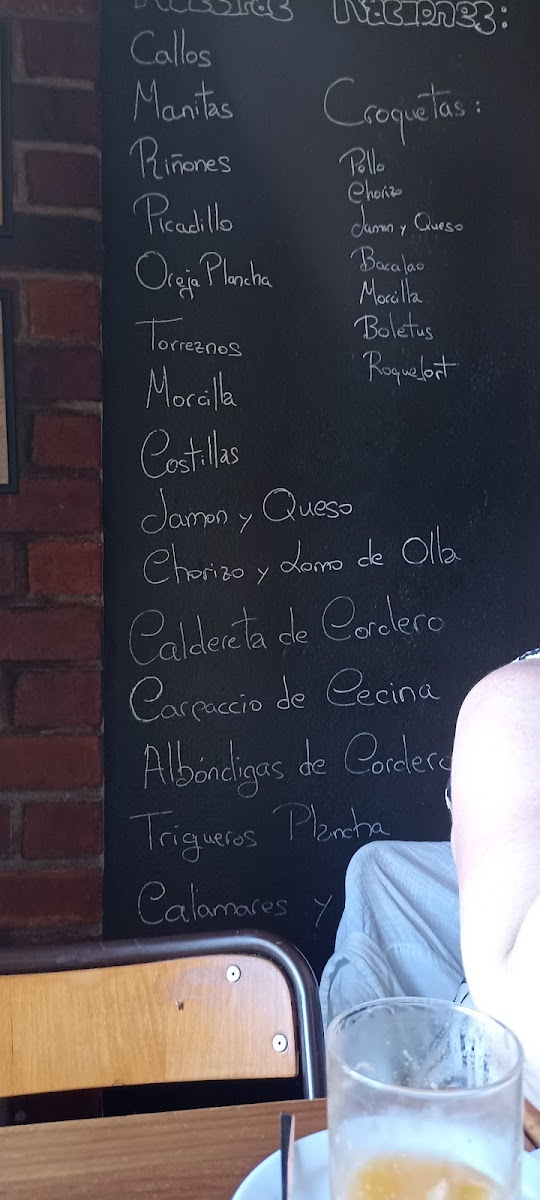 Nuestras Raciones:
Callos
Manitas
Riñones
Picadillo
Oreja Plancha
Torreznos
Morcilla
Costillas
Jamon y Queso
Chorizo y Lomo de Olla
Caldereta de Cordero
Carpaccio de Cecina
Albóndigas de Cordero
Trigueros Plancha
Calamares y
Croquetas:
Pollo
Chorizo
Jamon y Queso
Bacalao
Morcilla
Boletus
Roquefort